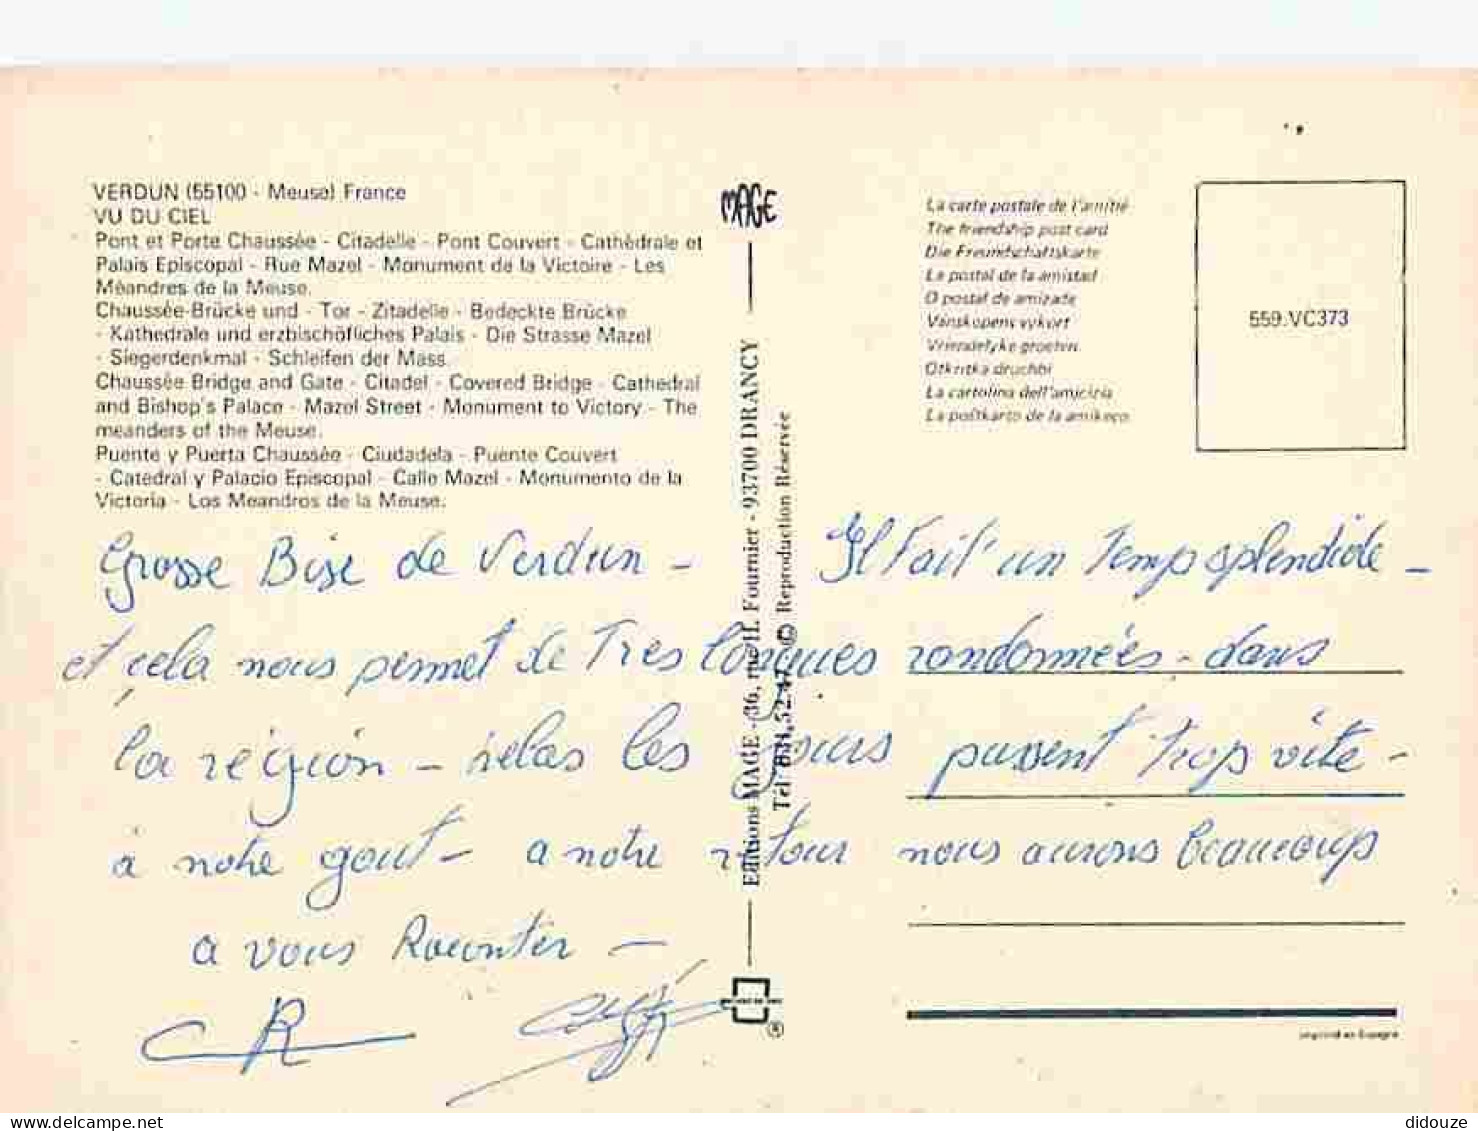 VERDUN (55100 - Meuse) France
VU DU CIEL
Pont et Porte Chaussée - Citadelle - Pont Couvert - Cathédrale et
Palais Episcopal - Rue Mazel - Monument de la Victoire - Les
Méandres de la Meuse.
Chaussée-Brücke und - Tor - Zitadelle - Bedeckte Brücke
- Kathedrale und erzbischöfliches Palais - Die Strasse Mazel
- Siegerdenkmal - Schleifen der Mass.
Chaussée Bridge and Gate - Citadel - Covered Bridge - Cathedral
and Bishop's Palace - Mazel Street - Monument to Victory - The
meanders of the Meuse.
Puente y Puerta Chaussée - Ciudadela - Puente Couvert
- Catedral y Palacio Episcopal - Calle Mazel - Monumento de la
Victoria - Los Meandros de la Meuse.
MAGE
Editions MAGE - 36, rue H. Fournier - 93700 DRANCY
Tél 831.52.47 © Reproduction Réservée
La carte postale de l'amitié
The friendship post card
Die Freundschaftskarte
La postal de la amistad
O postal de amizade
Vänskapens vykort
Vriendelyke groeten
Otkritka druchbi
La cartolina dell'amicizia
La poŝtkarto de la amikeco
559.VC373
Grosse Bise de Verdun - Il fait un temps splendide -
et cela nous permet de Très longues randonnées - dans
la région - hélas les jours passent trop vite -
à notre gout - a notre retour nous aurons beaucoup
a vous Raconter -
®
Imprimé en Espagne
www.delcampe.net
didouze